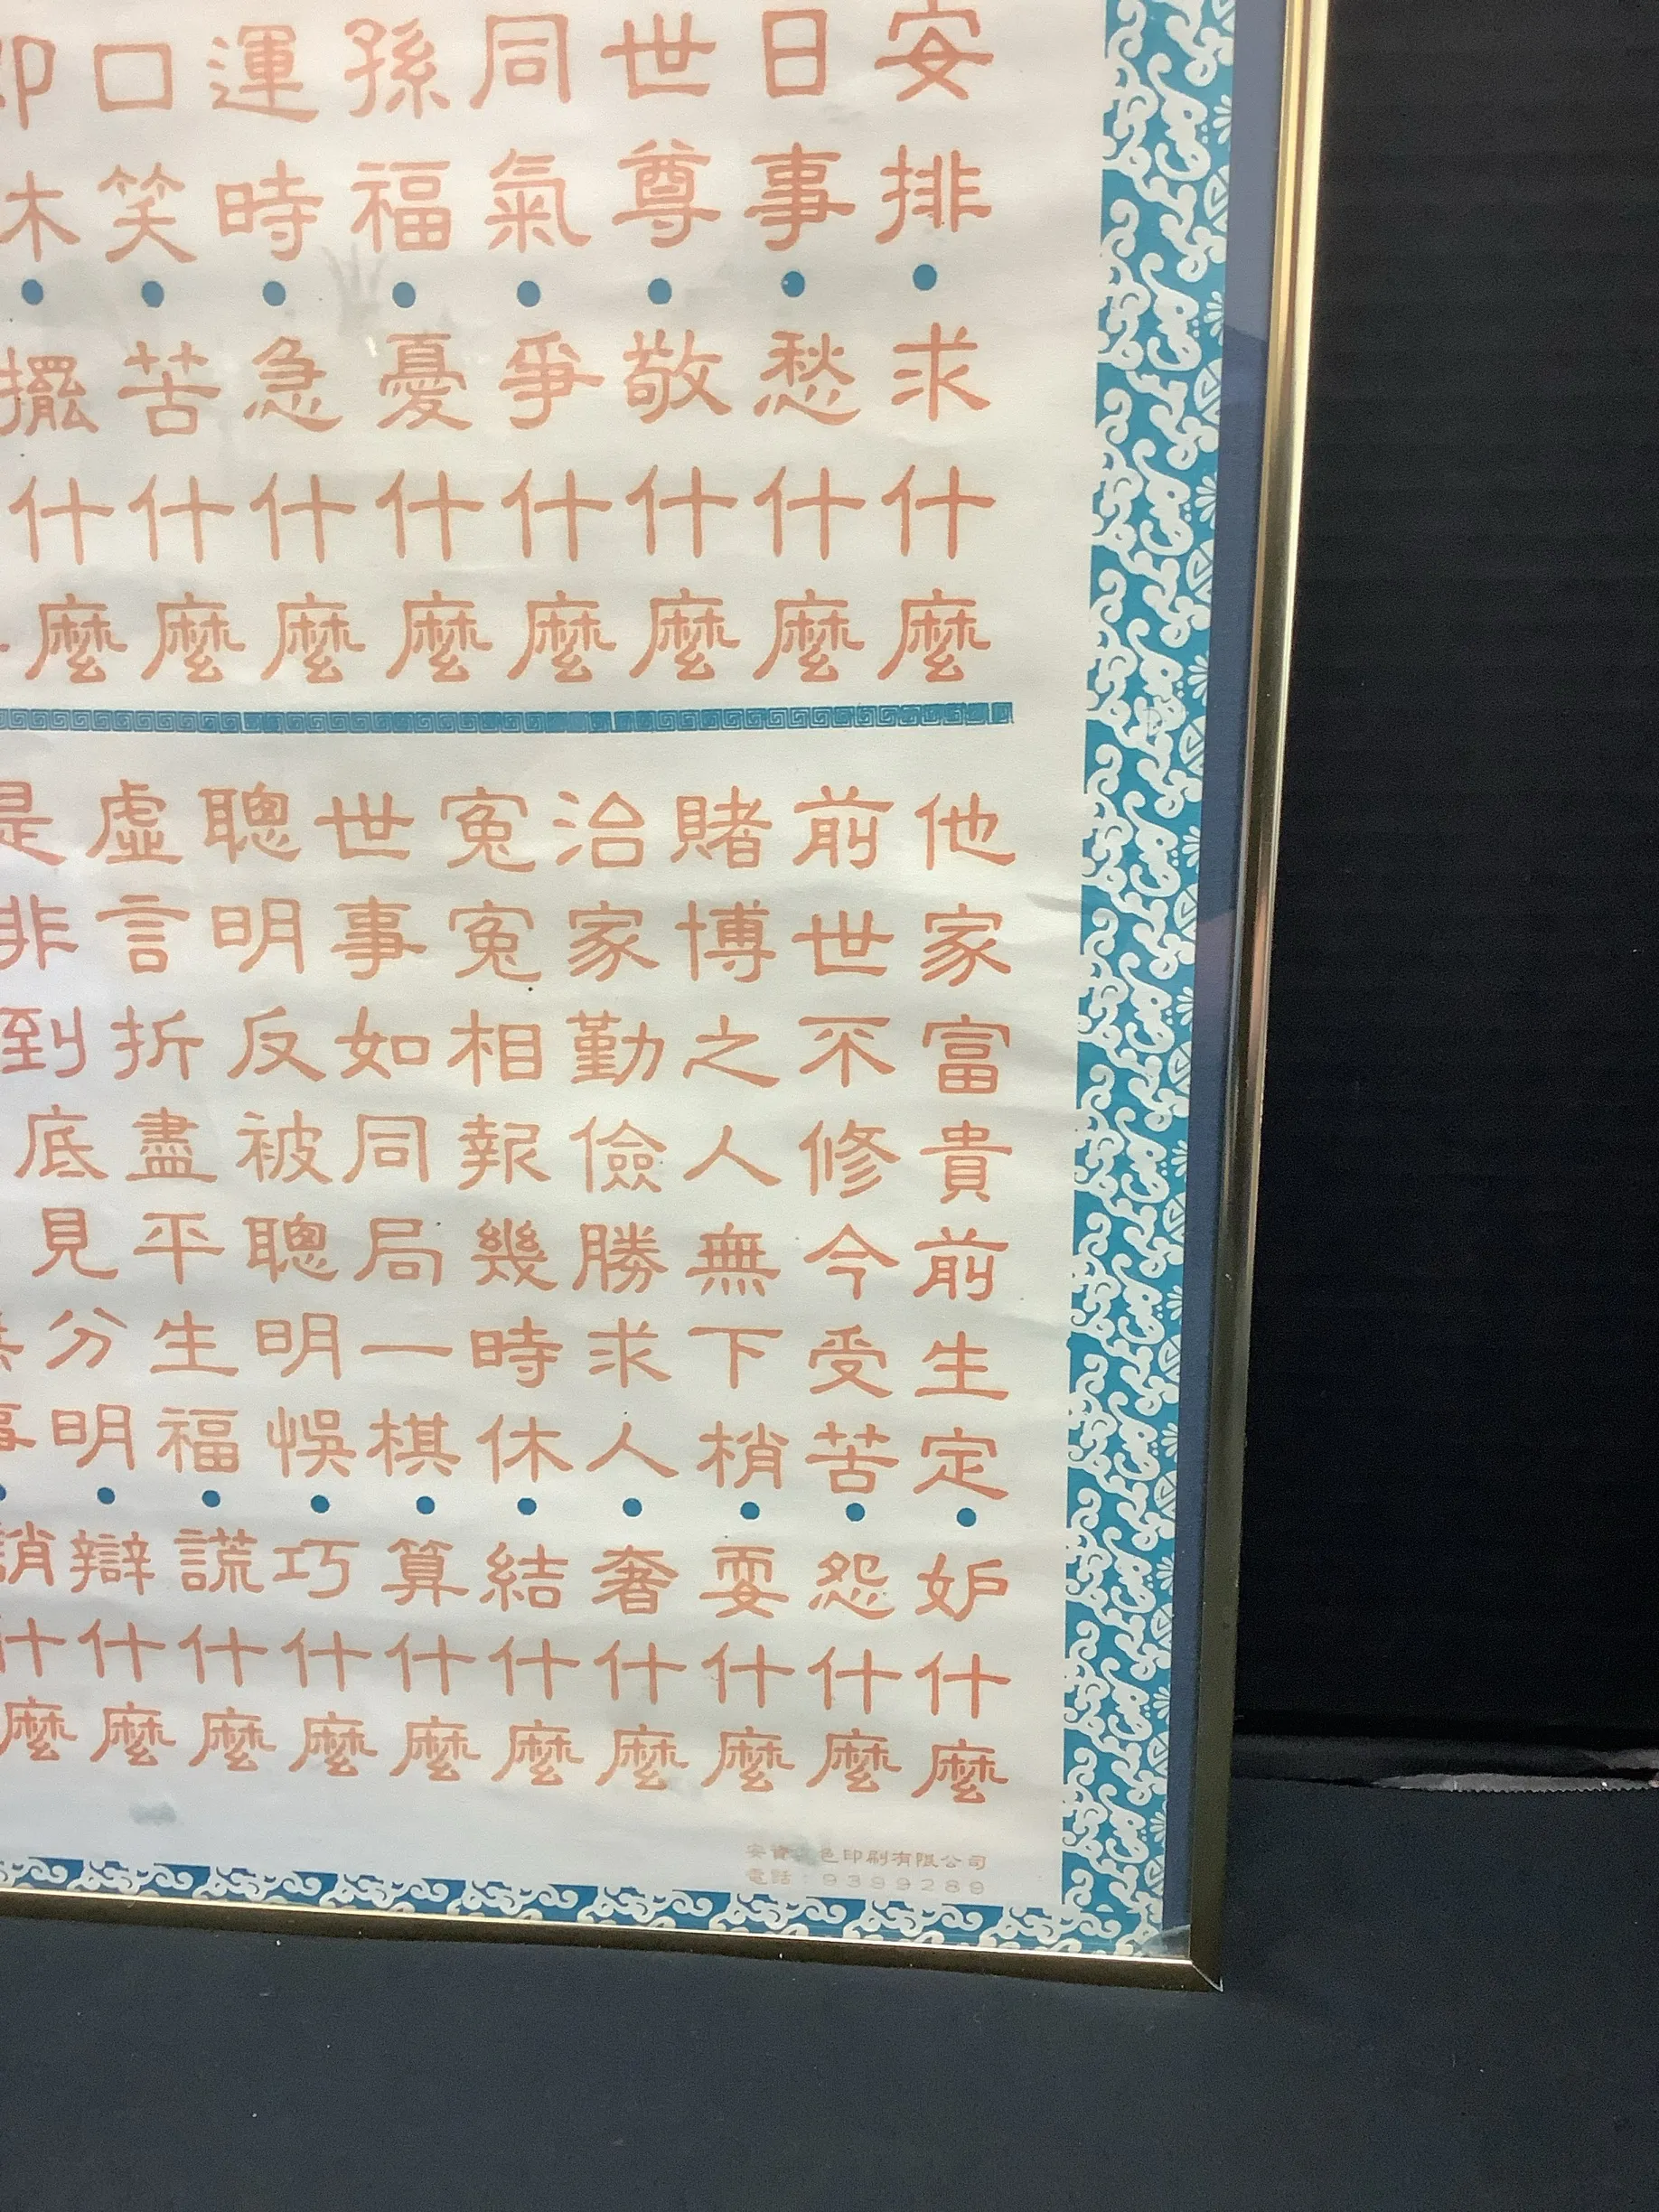 安排●求什麼
日事●愁什麼
世尊●敬什麼
同氣●爭什麼
孫福●憂什麼
運時●急什麼
口笑●苦什麼
卬木●擺什麼
他家富貴前生定●妒什麼
前世不修今受苦●怨什麼
賭博之人無下梢●耍什麼
治家勤儉勝求人●奢什麼
冤冤相報幾時休●結什麼
世事如同局一棋●算什麼
聰明反被聰明悞●巧什麼
虛言折盡平生福●謊什麼
是非到底見分明●辯什麼
事●誚什麼
色印刷有限公司
電話：9399289